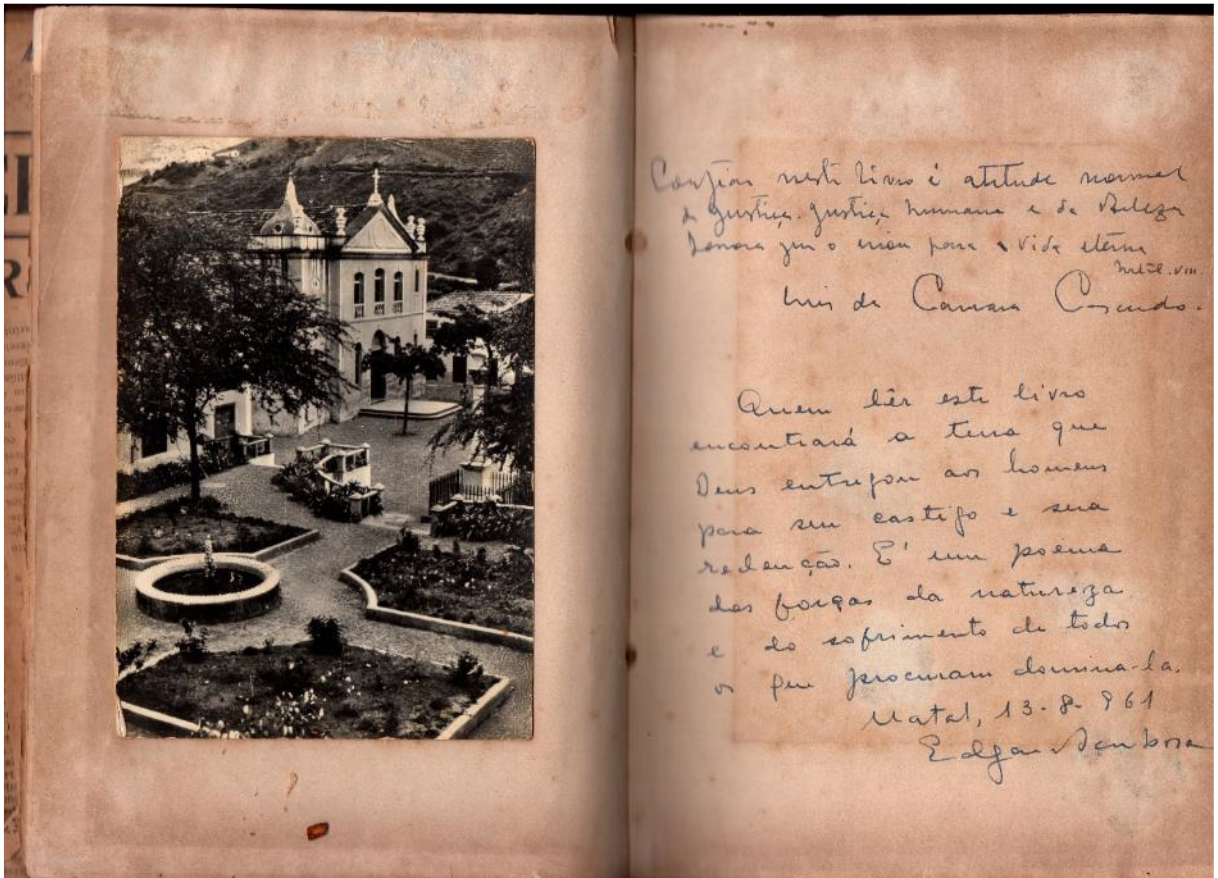 Confiar neste livro é atitude normal
de justiça. Justiça humana e da Beleza
sonora que o criou para a vida eterna
Natal. VIII.
Luis da Camara Cascudo.
Quem lêr este livro
encontrará a terra que
Deus entregou aos homens
para seu castigo e sua
redenção. E' um poema
das forças da natureza
e do sofrimento de todos
os que procuram domina-la.
Natal, 13-8-961
Edgar Barbosa